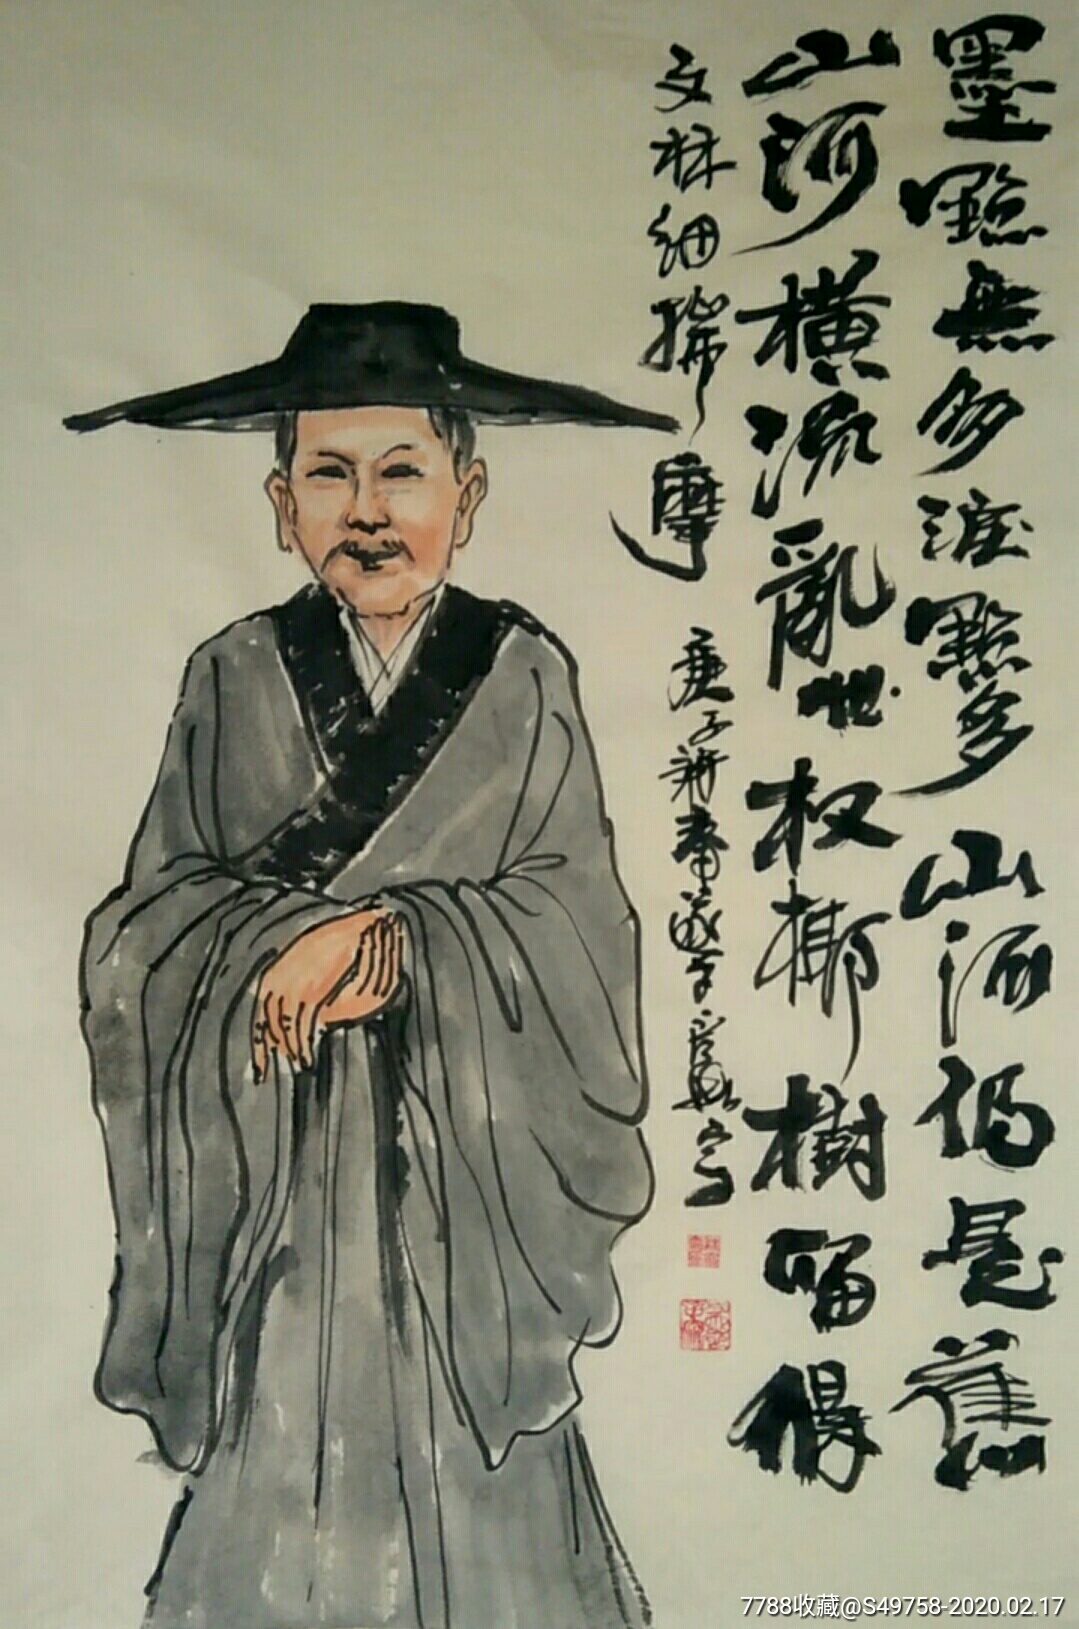 墨點無多淚點多山河仍是舊
山河橫流亂世杈椰樹留得
文林細揣摩
庚子新春
寫
7788收藏@S49758-2020.02.17